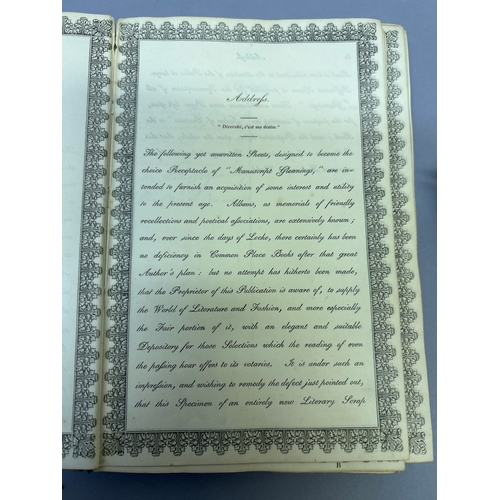 Addreſs.
"Diversité, c'est ma devise."
The following yet unwritten Sheets, designed to become the
choice Receptacle of "Manuscript Gleanings," are in-
tended to furnish an acquisition of some interest and utility
to the present age. Albums, as memorials of friendly
recollections and poetical aſsociations, are extensively known;
and, ever since the days of Locke, there certainly has been
no deficiency in Common Place Books after that great
Author's plan: but no attempt has hitherto been made,
that the Proprietor of this Publication is aware of, to supply
the World of Literature and Fashion, and more especially
the Fair portion of it, with an elegant and suitable
Depository for those Selections which the reading of even
the paſsing hour offers to its votaries. It is under such an
impreſsion, and wishing to remedy the defect just pointed out,
that this Specimen of an entirely new Literary Scrap
B